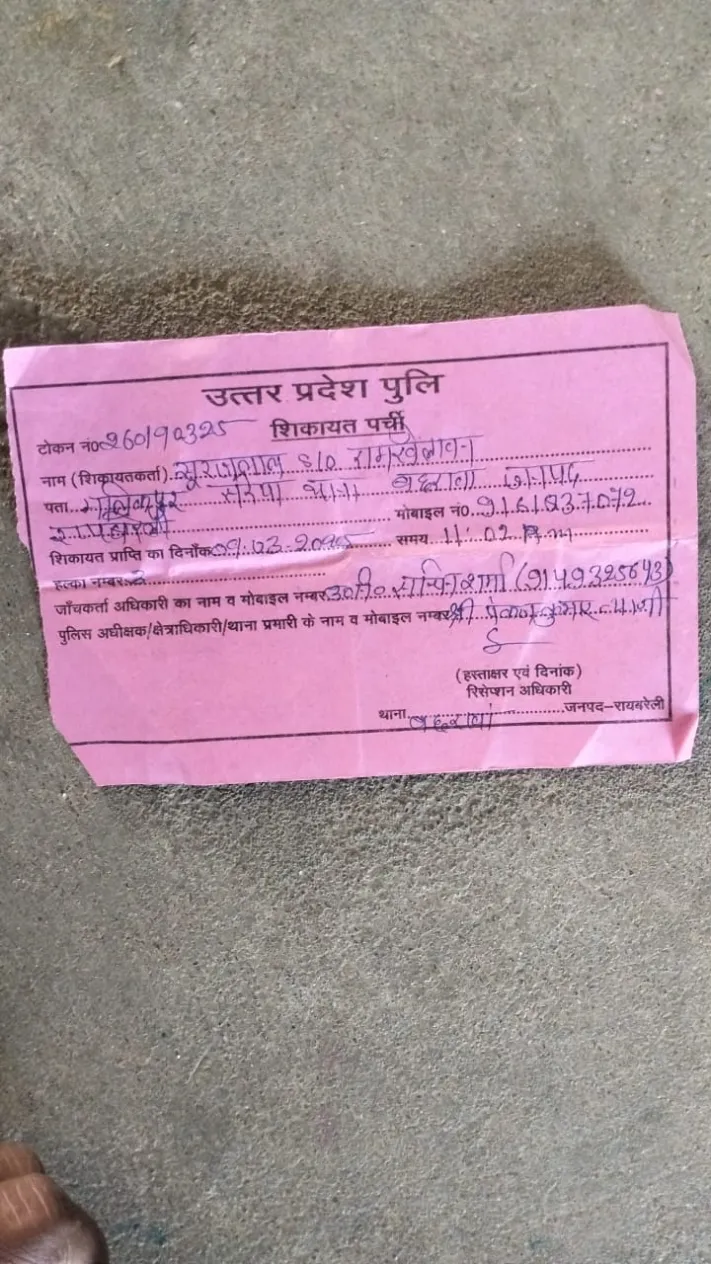 उत्तर प्रदेश पुलि
शिकायत पर्ची
टोकन नं० 260190325
नाम (शिकायतकर्ता) सूरजलाल S/O रामखेलावन
पता मलिकपुर सरैया थाना बछरावां जनपद
रायबरेली मोबाइल नं०
शिकायत प्राप्ति का दिनाँक 09.03.2025 समय 11:02
हल्का नम्बर 2
जाँचकर्ता अधिकारी का नाम व मोबाइल नम्बर उ०नि० शर्मा (9149325643)
पुलिस अधीक्षक/क्षेत्राधिकारी/थाना प्रभारी के नाम व मोबाइल नम्बर श्री कुमार त्यागी
(हस्ताक्षर एवं दिनांक)
रिसेप्शन अधिकारी
थाना बछरावां जनपद–रायबरेली